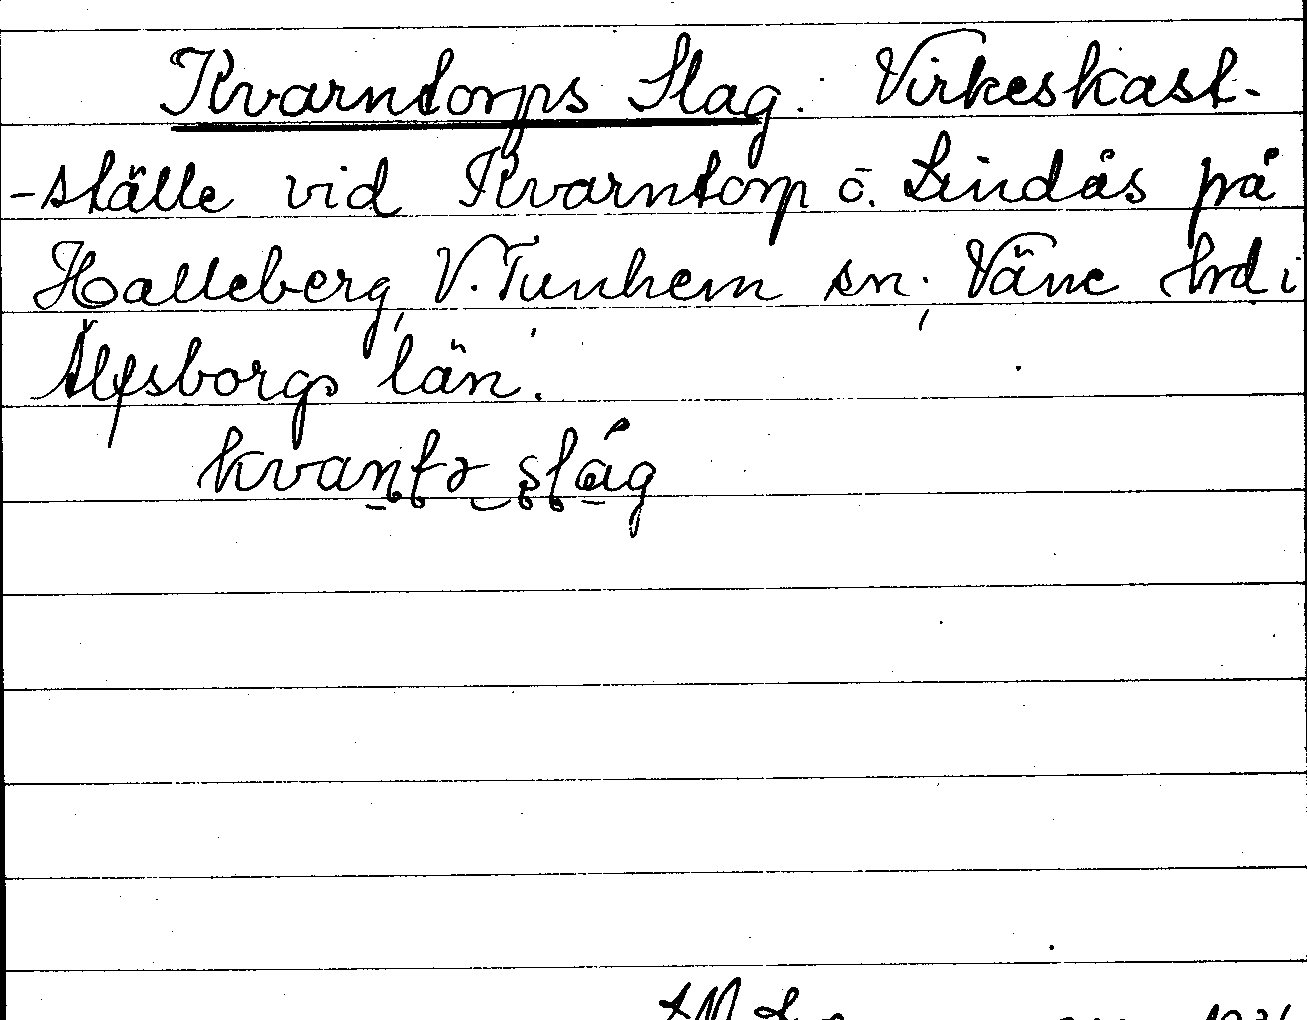 Kvarntorps Slag. Virkeskast-
-ställe vid Kvarntorp ö. Lindås på
Halleberg, V. Tunhem sn, Väne hrd i
Älfsborgs län.